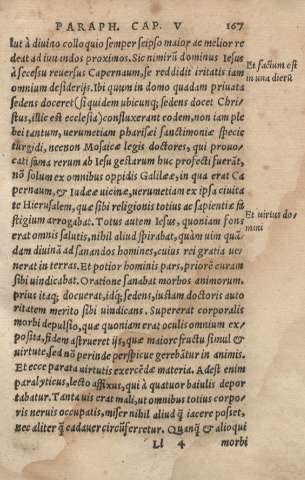 PARAPH. CAP. V 167
lut à diuino colloquio semper seipso maior ac melior re
deat ad iuuandos proximos. Sic nimirū dominus Iesus
à secessu reuersus Capernaum, se reddidit iritatis iam
omnium desiderijs. Ibi quum in domo quadam priuata
sedens doceret (si quidem ubicunq; sedens docet Chri-
stus, illic est ecclesia) confluxerant eodem, non iam ple
bei tantum, uerumetiam pharisæi sanctimoniæ specie
turgidi, necnon Mosaicæ legis doctores, qui prouo,
cati fama rerum ab Iesu gestarum huc profecti fuerāt,
nō solum ex omnibus oppidis Galilææ, in qua erat Ca
pernaum, & Iudææ uicinæ, uerumetiam ex ipsa ciuita
te Hierusalem, quæ sibi religionis totius ac sapientiæ fa
stigium arrogabat. Totus autem Iesus, quoniam fons
erat omnis salutis, nihil aliud spirabat, quàm uim quā-
dam diuinā ad sanandos homines, cuius rei gratia ue-
nerat in terras. Et potior hominis pars, priorē curam
sibi uindicabat. Oratione sanabat morbos animorum.
prius itaq; docuerat, idq; sedens, iustam doctoris auto
ritatem merito sibi uindicans. Supererat corporalis
morbi depulsio, quæ quoniam erat oculis omnium ex-
posita, fidem astrueret ijs, quæ maiore fructu simul &
uirtute, sed nō perinde perspicue gerebātur in animis.
Et ecce parata uirtutis exercēdæ materia. Adest enim
paralyticus, lecto affixus, qui à quatuor baiulis depor
tabatur. Tanta uis erat mali, ut omnibus totius corpo-
ris neruis occupatis, miser nihil aliud q̄ iacere posset,
nec aliter q̄ cadauer circūferretur. Quanq̄ & alioqui
Ll 4 morbi
Et factum est
in una dierū
Et uirtus do-
mini